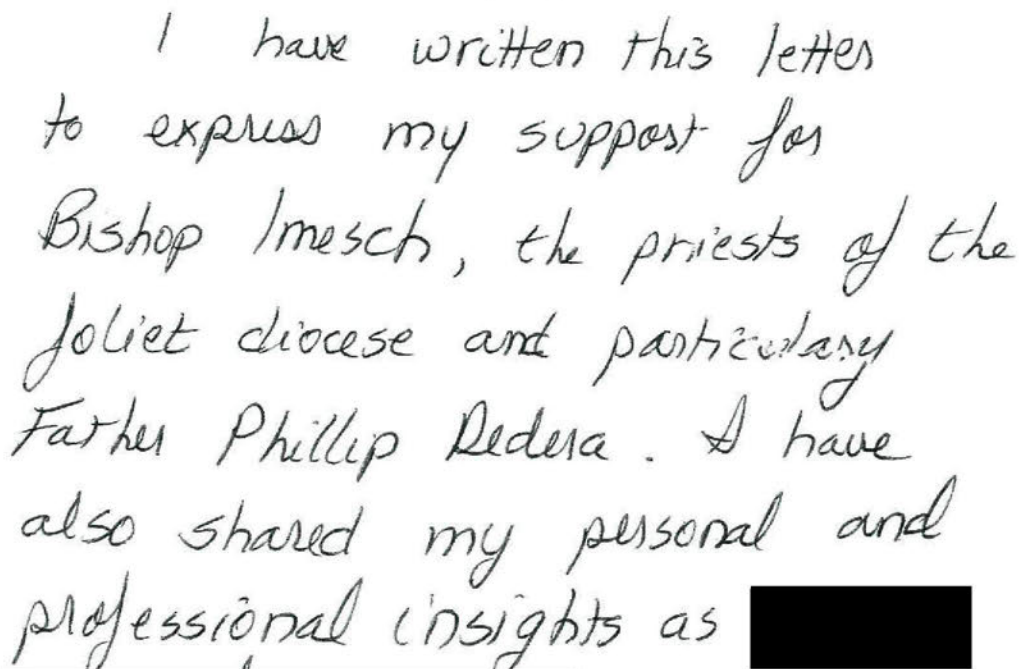 I have written this letter
to express my support for
Bishop Imesch, the priests of the
Joliet diocese and particulary
Father Phillip Dedera. I have
also shared my personal and
professional insights as